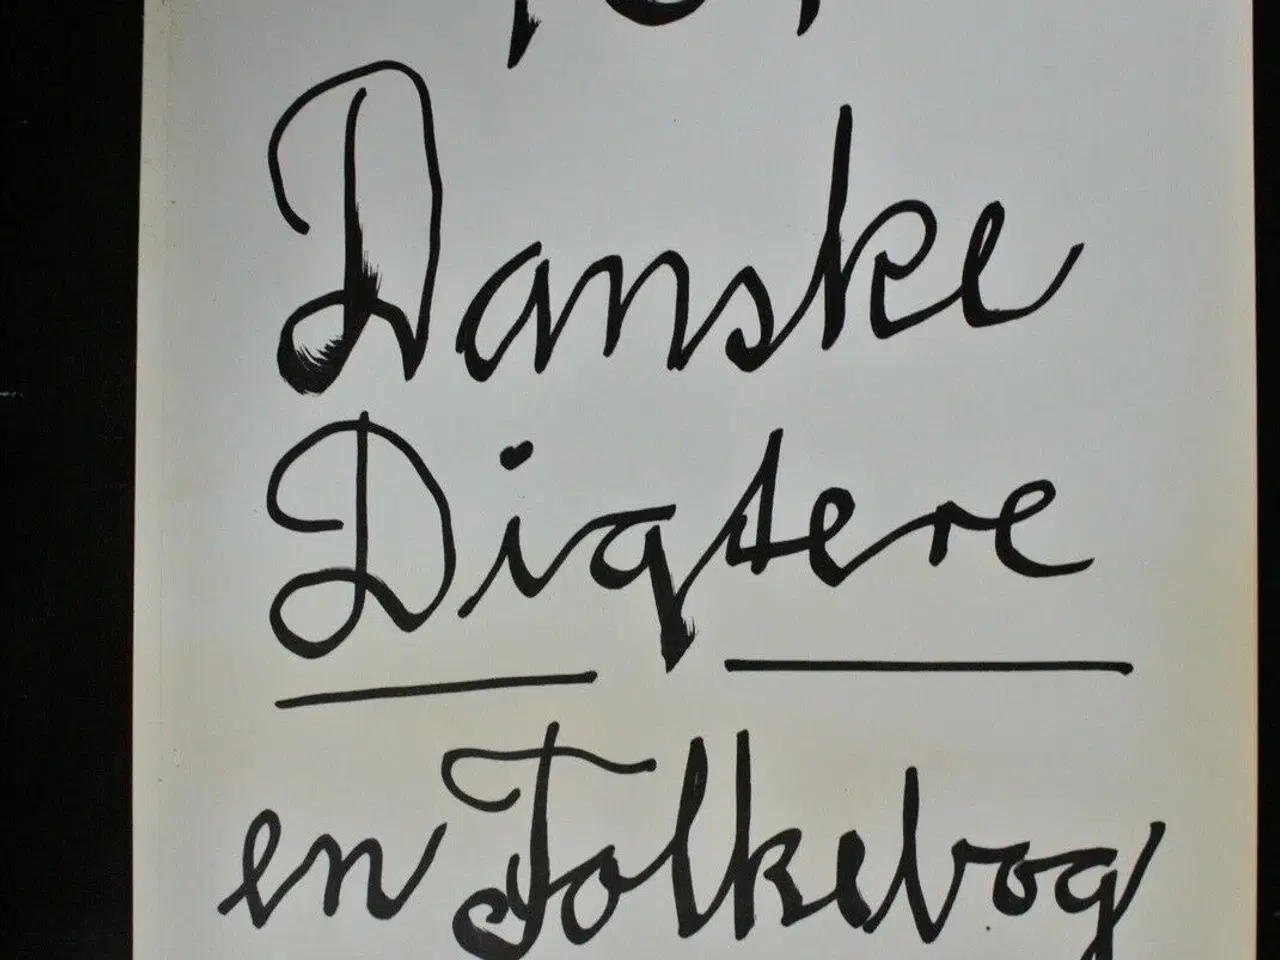 Danske
Digtere
en Folkebog